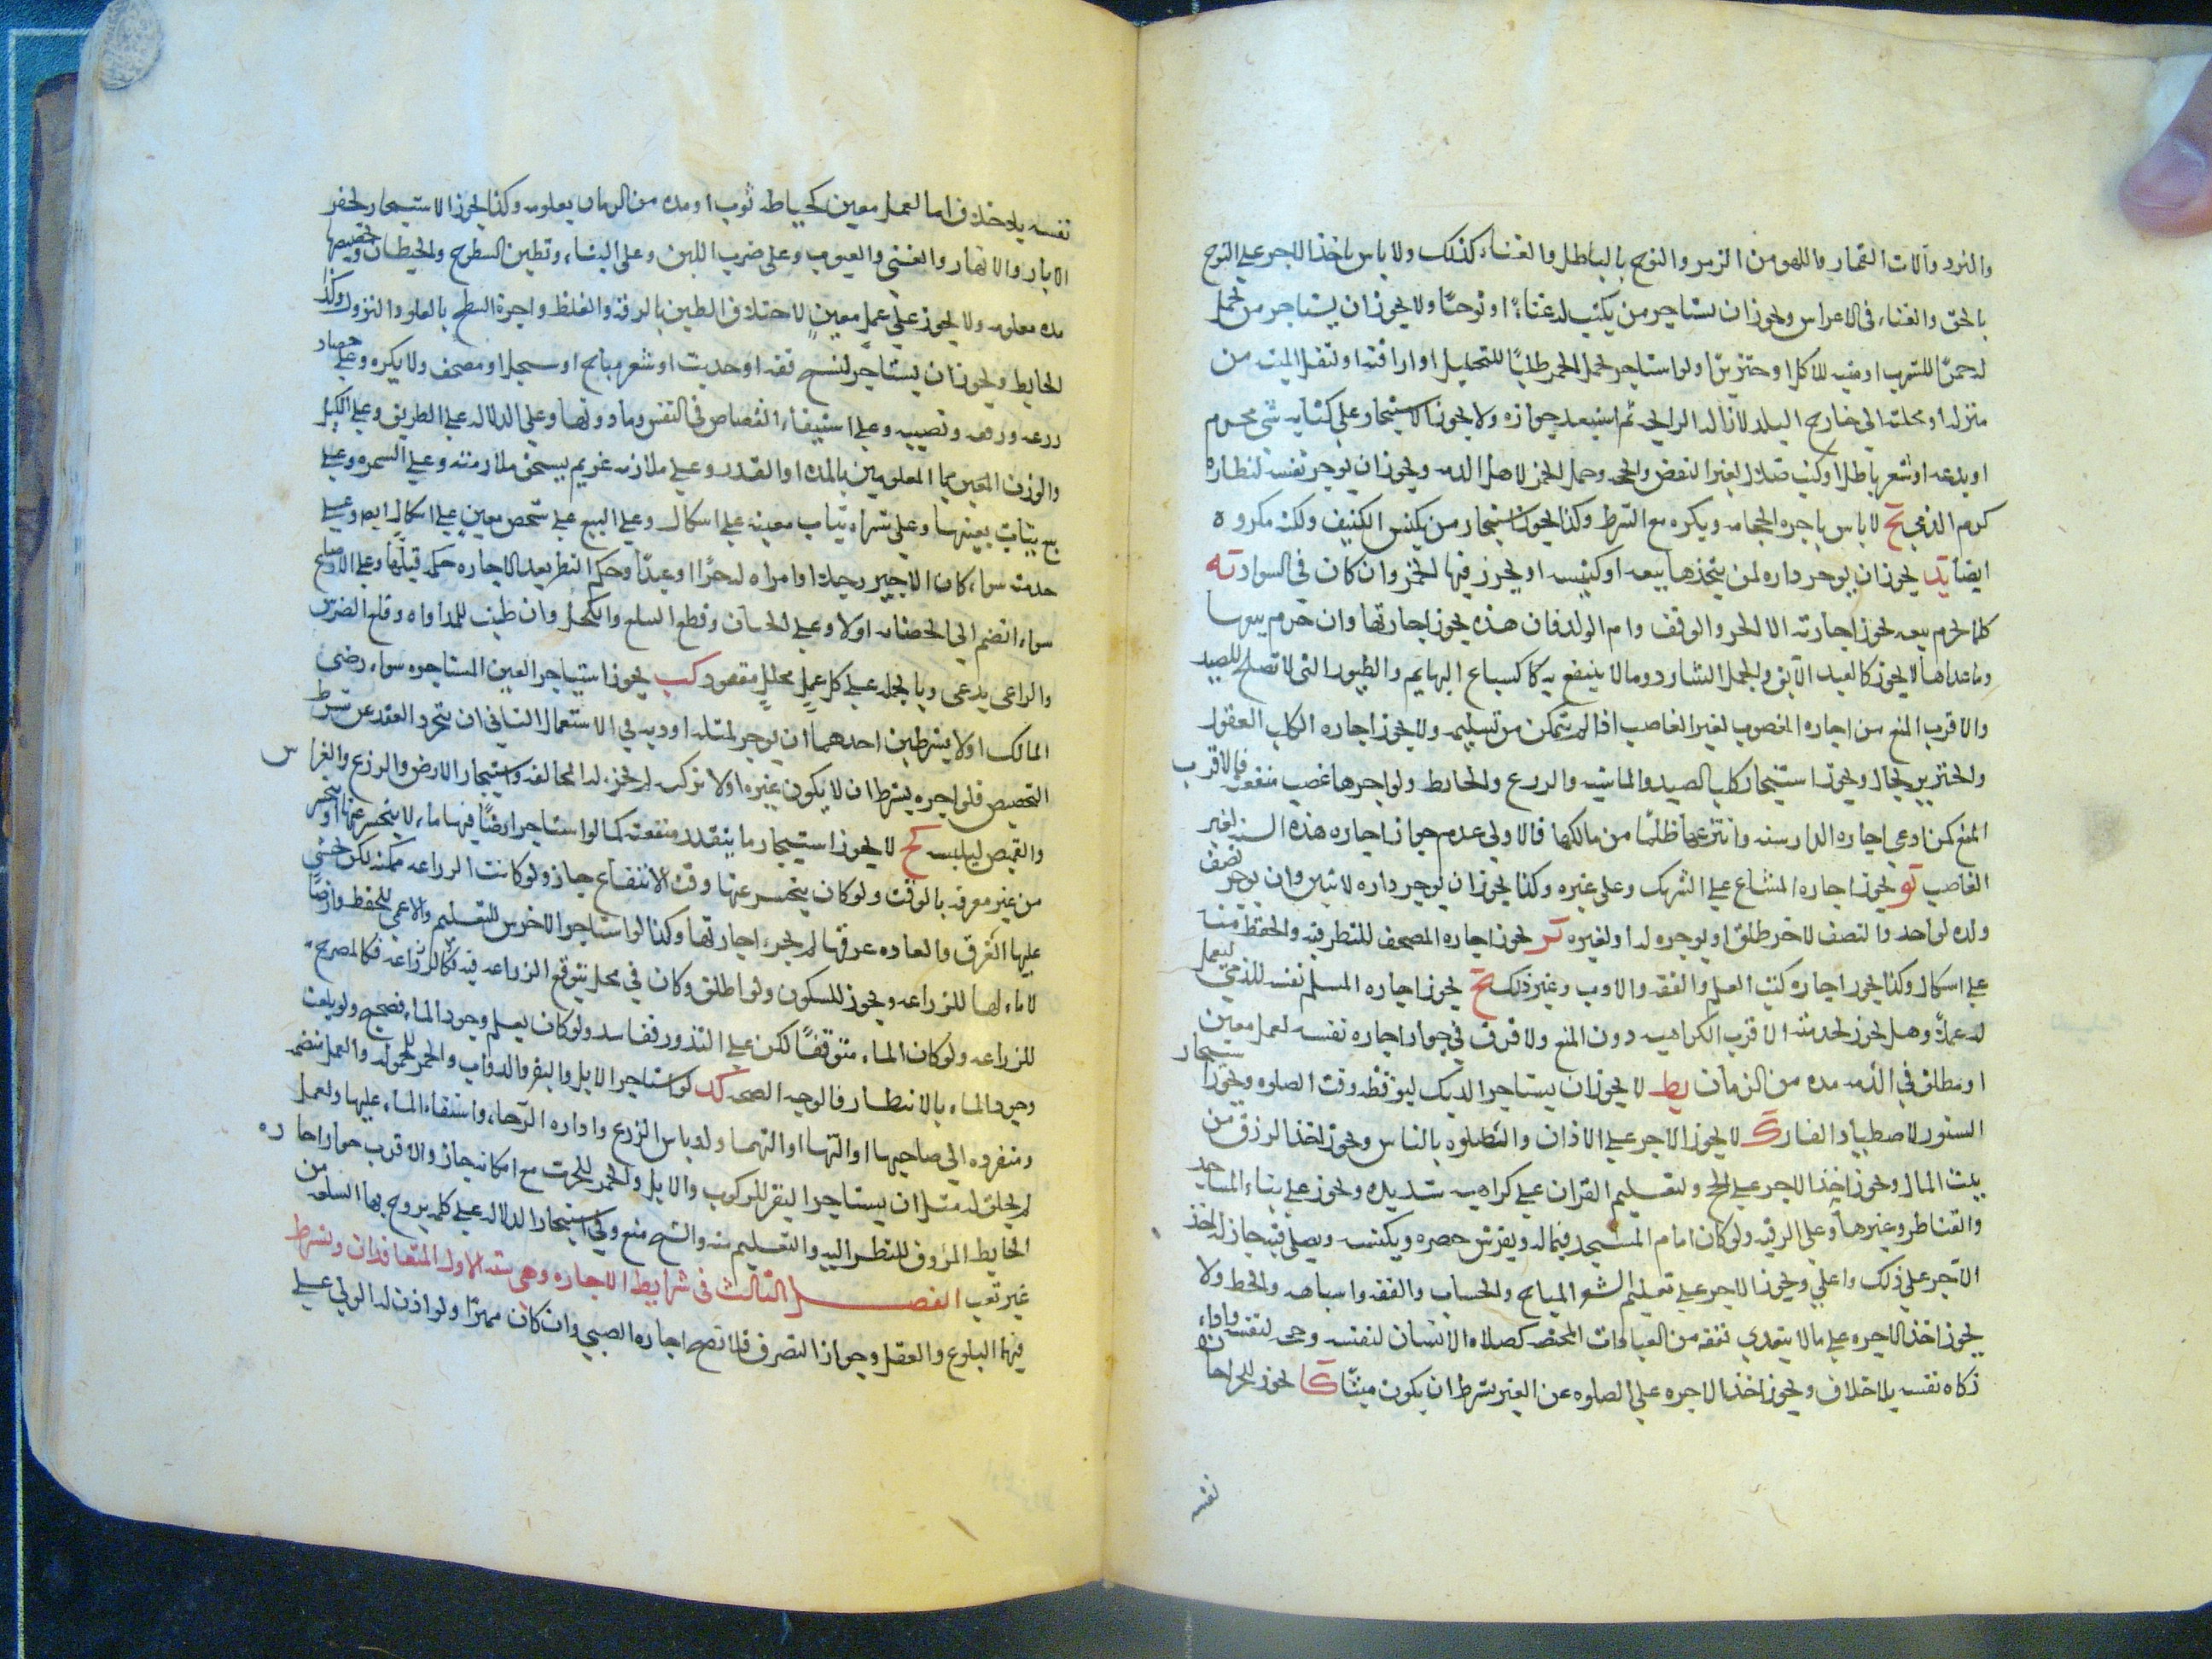 والنرد وآلات القمار واللهو من الزمر والنوح بالباطل والغناء كذلك ولا باس باخذ الاجر على النوح
بالحق والغناء في الاعراس ويجوز ان يستاجر من يكتب له غناءً او نوحًا ولا يجوز ان يستاجر من يحمل
له خمرًا للشرب او ميته للاكل او خنزيرًا ولو استاجر لحمل الخمر طلبًا للتحليل او اراقته او لنقل الميته من
منزله او محلته الى خارج البلد لازاله الرايحه ثم استبعد جوازه ولا يجوز الاستيجار على كتابه شي محرم
او بدعه او شعر باطل او كتب ضلال لغير النقض والحجه وحمل الخمر لاهل الذمه ويجوز ان يوجر نفسه لنظاره
كرم الذمي يج لا باس باجره الحجامه ويكره مع الشرط وكذا يجوز استيجار من يكنس الكنيف ولكنه مكروه
ايضا يد يجوز ان يوجر داره لمن يتخذها بيعه او كنيسه او يحرز فيها الخمر وان كان في السواد يه
كلما يحرم بيعه يجوز اجارته الا الحر والوقف وام الولد فان هذه يجوز اجارتها وان حرم بيعها
وما عداها لا يجوز كالعبد الآبق والجمل الشارد وما لا ينتفع به كسباع البهايم والطيور التي لا تصلح للصيد
والاقرب المنع من اجاره المغصوب لغير الغاصب اذا لم يتمكن من تسليمه ولا يجوز اجاره الكلب العقور
والخنزير بحال ويجوز استيجار كلب الصيد والماشيه والزرع والحايط ولو اجرها غصب منفعه فالاقرب
المنع كمن ادعى اجاره الدار سنه وانتزعها ظلمًا من مالكها فالاولى عدم جواز اجاره هذه السنه لغير
الغاصب يو يجوز اجاره المشاع على الشريك وعلى غيره وكذا يجوز ان يوجر داره لاثنين وان يوجر نصف
ولده لواحد والنصف لاخر طلق او يوجره له او لغيره يز يجوز اجاره المصحف للنظر فيه والحفظ منه
على اشكال وكذا يجوز اجاره كتب العلم والفقه والادب وغير ذلك يح يجوز اجاره المسلم نفسه للذمي ليعمل
له عملاً وهل يجوز لخدمته الاقرب الكراهيه دون المنع ولا فرق في جواز اجاره نفسه لعمل معين
او مطلق في الذمه مده من الزمان يط لا يجوز ان يستاجر الديك ليوقظه وقت الصلوه ويجوز استيجار
السنور لاصطياد الفار ك لا يجوز الاجر على الاذان والصلوه بالناس ويجوز اخذ الرزق من
بيت المال ويجوز اخذ الاجر على الحج ولتعليم القران على كراهيه شديده ويجوز على بناء المساجد
والقناطر وغيرها وعلى الرقيه ولو كان امام المسجد فيما له ويفرش حصره ويكنسه ويصلي فيه جاز له اخذ
الآجر على ذلك واعلى ويجوز الاجر على تعليم الشعر المباح والحساب والفقه واسباهه والخط ولا
يجوز اخذ الاجره على ما لا يتعدى نفعه من العبادات المحضه كصلاه الانسان لنفسه وحجه لنفسه واداء
زكاه نفسه بلا خلاف ويجوز اخذ الاجره على الصلوه عن الغير بشرط ان يكون ميتًا كا يجوز للحر اجاره
نفسه
نفسه بلا خلاف اما لعمل معين كخياطه ثوب او مده من الزمان معلومه وكذا يجوز الاستيجار لحفر
الابار والانهار والقنى والعيون وعلى ضرب اللبن وعلى البناء وتطين السطوح والحيطان وتجصيصها
مده معلومه ولا يجوز على عمل معين لاختلاف الطين بالرقه والغلظ واجرة السطح بالعلو والنزول وكذا
الحايط ويجوز ان يستاجر لنسخ فقه او حديث او شعر مباح او سجل او مصحف ولا يكره وعلى حصاد
زرعه وتصيبه وعلى استيفاء القصاص في النفس وما دونها وعلى الدلاله على الطريق وعلى الكيل
والوزن المعين المعلومين بالمده او القدر وعلى ملازمه غريم يستحق ملازمته وعلى السمسره وعلى
بيع ثياب بعينها وعلى شراء ثياب معينه على اشكال وعلى البيع على شخص معين على اشكال ايضا وعلى
خدمته سواء كان الاجير رجلا او امراه حرًا او عبدًا وحكم النظر بعد الاجاره حكمه قبلها وعلى الارضاع
سواء انضم الى الحضانه اولا وعلى الختان وقطع السلع والكحل وان طبيب للمداواه وقلع الضرس
والراعي يدعى وبالجمله على كل عمل محلل مقصود كب يجوز استيجار العين المستاجره سواء رضى
المالك اولا بشرطين احدهما ان يوجر لمثله او دونه في الاستعمال الثاني ان يتجرد العقد عن شرط
التخصيص فلو اجره بشرط ان لا يكون غيره اولا يركبه لم يجز له المخالفه واستيجار الارض والزرع والغراس
والقميص ليلبسه كج لا يجوز استيجار ما يتعذر منفعته كما لو استاجر ارضًا فيها ماء لا ينحسر عنها او ينحسر
من غير معرفه بالوقت ولو كان ينحسر عنها وقت الانتفاع جاز ولو كانت الزراعه ممكنه لكن خشى
عليها الغرق والعاده غرقها لم يجز اجارتها وكذا لو استاجر الاخرس للتعليم والاعمى للحفظ وارضًا
لا ماء لها للزراعه ويجوز للسكون ولو اطلق وكان في محل يتوقع الزراعه فيه كالزراعه فكالمصرح
للزراعه ولو كان الماء متوقفًا لكن على الندور ففاسد ولو كان يعلم وجود الماء فصحيح ولو بلغت
وجود الماء بالانتظار فالوجه الصحه كد لو استاجر الابل والبقر والدواب والحمر للحموله والعمل منضمه
ومنفرده الى صاحبها او آلتها او الهما ولدياس الزرع واداره الرحاء واستقاء الماء عليها ولعمل
لم يخلق له مثل ان يستاجر البقر للركوب والابل والحمر للحرث مع امكانه جاز والاقرب جواز اجاره
الحايط المزوق للنظر اليه والتعليم منه والشيخ منع وفي استيجار الدلاله على كلمه يروج بها السلعه من
غير تعب الفصل الثالث في شرايط الاجاره وهي سته الاول المتعاقدان ويشترط
فيهما البلوغ والعقل وجواز التصرف فلا تصح اجاره الصبي وان كان مميزًا ولو اذن له الولي على